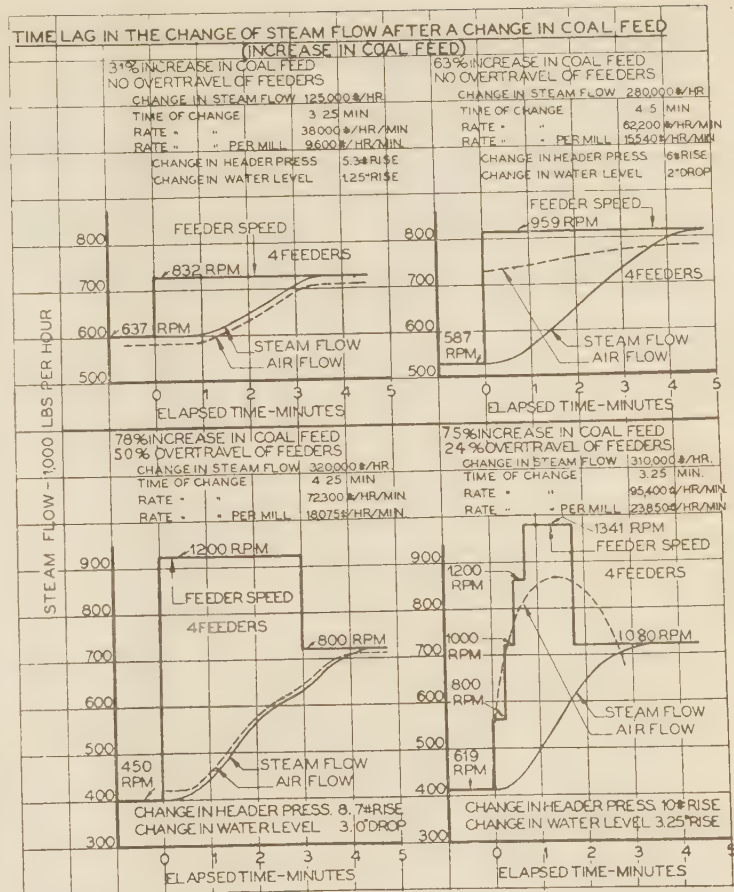 TIME LAG IN THE CHANGE OF STEAM FLOW AFTER A CHANGE IN COAL FEED
(INCREASE IN COAL FEED)
31% INCREASE IN COAL FEED
NO OVERTRAVEL OF FEEDERS
CHANGE IN STEAM FLOW 125,000#/HR
TIME OF CHANGE 3 25 MIN
RATE " " 38000#/HR/MIN
RATE " " PER MILL 9,600#/HR/MIN.
CHANGE IN HEADER PRESS 5.3# RISE
CHANGE IN WATER LEVEL 1.25" RISE
FEEDER SPEED
832 RPM
4 FEEDERS
637 RPM
STEAM FLOW
AIR FLOW
800
700
600
500
0 1 2 3 4 5
ELAPSED TIME-MINUTES
63% INCREASE IN COAL FEED
NO OVERTRAVEL OF FEEDERS
CHANGE IN STEAM FLOW 280,000#/HR
TIME OF CHANGE 4 5 MIN
RATE " " 62,200#/HR/MIN
RATE " " PER MILL 15,540#/HR/MIN.
CHANGE IN HEADER PRESS 6# RISE
CHANGE IN WATER LEVEL 2" DROP
FEEDER SPEED
959 RPM
4 FEEDERS
587 RPM
STEAM FLOW
AIR FLOW
800
700
600
500
0 1 2 3 4 5
ELAPSED TIME-MINUTES
STEAM FLOW - 1,000 LBS PER HOUR
78% INCREASE IN COAL FEED
50% OVERTRAVEL OF FEEDERS
CHANGE IN STEAM FLOW 320,000#/HR.
TIME OF CHANGE 4 25 MIN
RATE " " 72,300#/HR/MIN.
RATE " " PER MILL 18,075#/HR/MIN
1200 RPM
FEEDER SPEED
4 FEEDERS
800 RPM
450 RPM
STEAM FLOW
AIR FLOW
900
800
700
600
500
400
300
CHANGE IN HEADER PRESS. 8.7# RISE
CHANGE IN WATER LEVEL 3.0" DROP
0 1 2 3 4 5
ELAPSED TIME-MINUTES
75% INCREASE IN COAL FEED
24% OVERTRAVEL OF FEEDERS
CHANGE IN STEAM FLOW 310,000#/HR.
TIME OF CHANGE 3.25 MIN.
RATE " " 95,400#/HR/MIN.
RATE " " PER MILL 23,850#/HR/MIN
1341 RPM
FEEDER SPEED
1200 RPM
4 FEEDERS
1000 RPM
1080 RPM
800 RPM
619 RPM
STEAM FLOW
AIR FLOW
900
800
700
600
500
400
300
CHANGE IN HEADER PRESS. 10# RISE
CHANGE IN WATER LEVEL 3.25" RISE
0 1 2 3 4 5
ELAPSED TIME-MINUTES